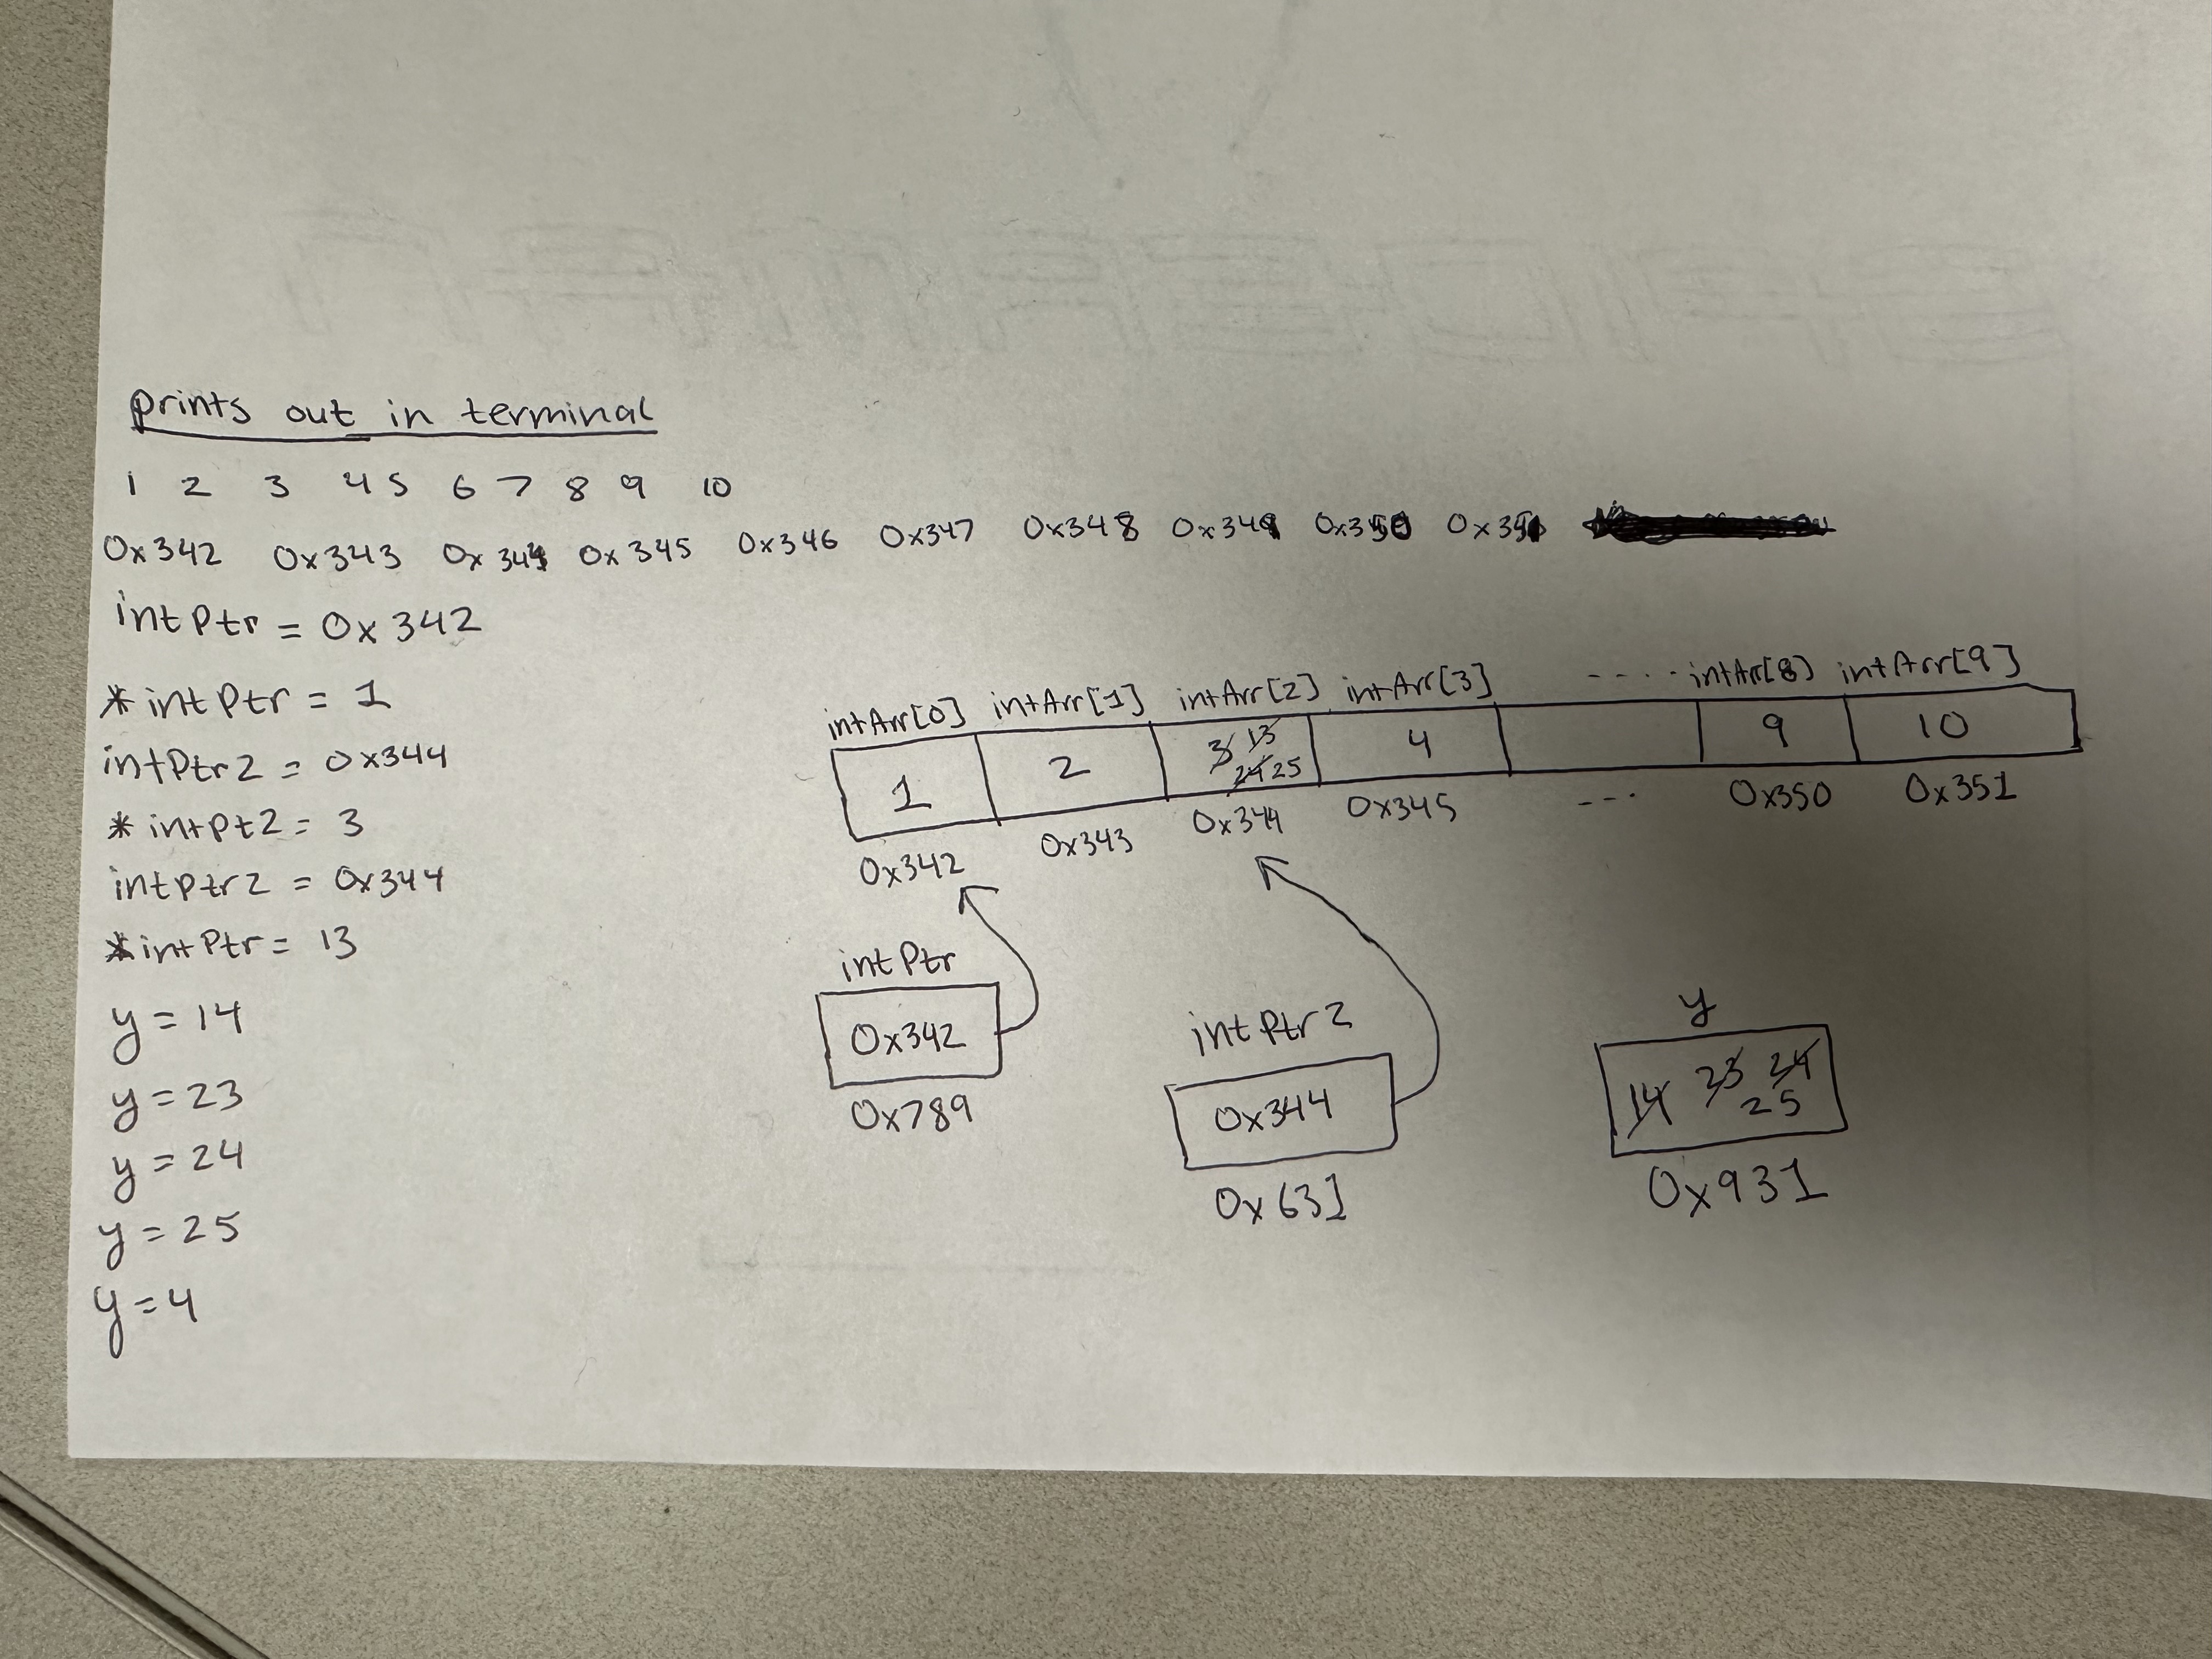 prints out in terminal
1 2 3 4 5 6 7 8 9 10
0x342 0x343 0x344 0x345 0x346 0x347 0x348 0x349 0x350 0x351
intPtr = 0x342
*intPtr = 1
intPtr2 = 0x344
*intPt2 = 3
intPtr2 = 0x344
*intPtr = 13
y = 14
y = 23
y = 24
y = 25
y = 4
intArr[0] intArr[1] intArr[2] intArr[3] .... intArr[8] intArr[9]
1 2 3 13 4 9 10
24 25
0x342 0x343 0x344 0x345 ... 0x350 0x351
intPtr intPtr2 y
0x342 0x344 14 23 24
25
0x789 0x631 0x931